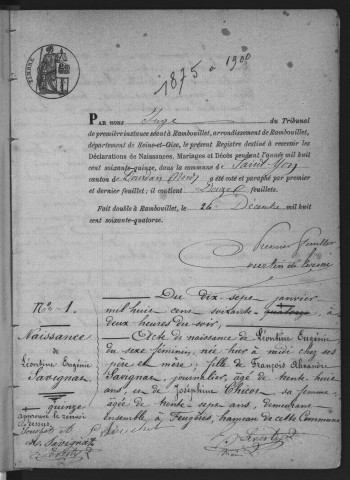 1875 à 1900
TIMBRE
PAR NOUS Juge du Tribunal
de première instance séant à Rambouillet, arrondissement de Rambouillet,
département de Seine-et-Oise, le présent Registre destiné à recevoir les
Déclarations de Naissances, Mariages et Décès pendant l'année mil huit
cent soixante-quinze, dans la commune de Saint-Yon
canton de Dourdan (Nord) a été coté et paraphé par premier
et dernier feuillet; il contient feuillets.
Fait double à Rambouillet, le 24 Décembre mil huit
cent soixante-quatorze.
Premier feuillet
N° 1.
Naissance
de
Léontine Eugénie
Savignat
Du dix-sept janvier
mil huit cent soixante quatorze à
deux heures du soir,
Acte de naissance de Léontine Eugénie
du sexe féminin, née hier à midi chez ses
père et mère; fille de François Alexandre
Savignat, journalier, âgé de trente huit
ans et de Joséphine Chicot sa femme,
âgée de trente-sept ans, demeurant
ensemble, à Feugères, hameau de cette Commune
quinze
approuvé le renvoi
ci-dessus
Savignat